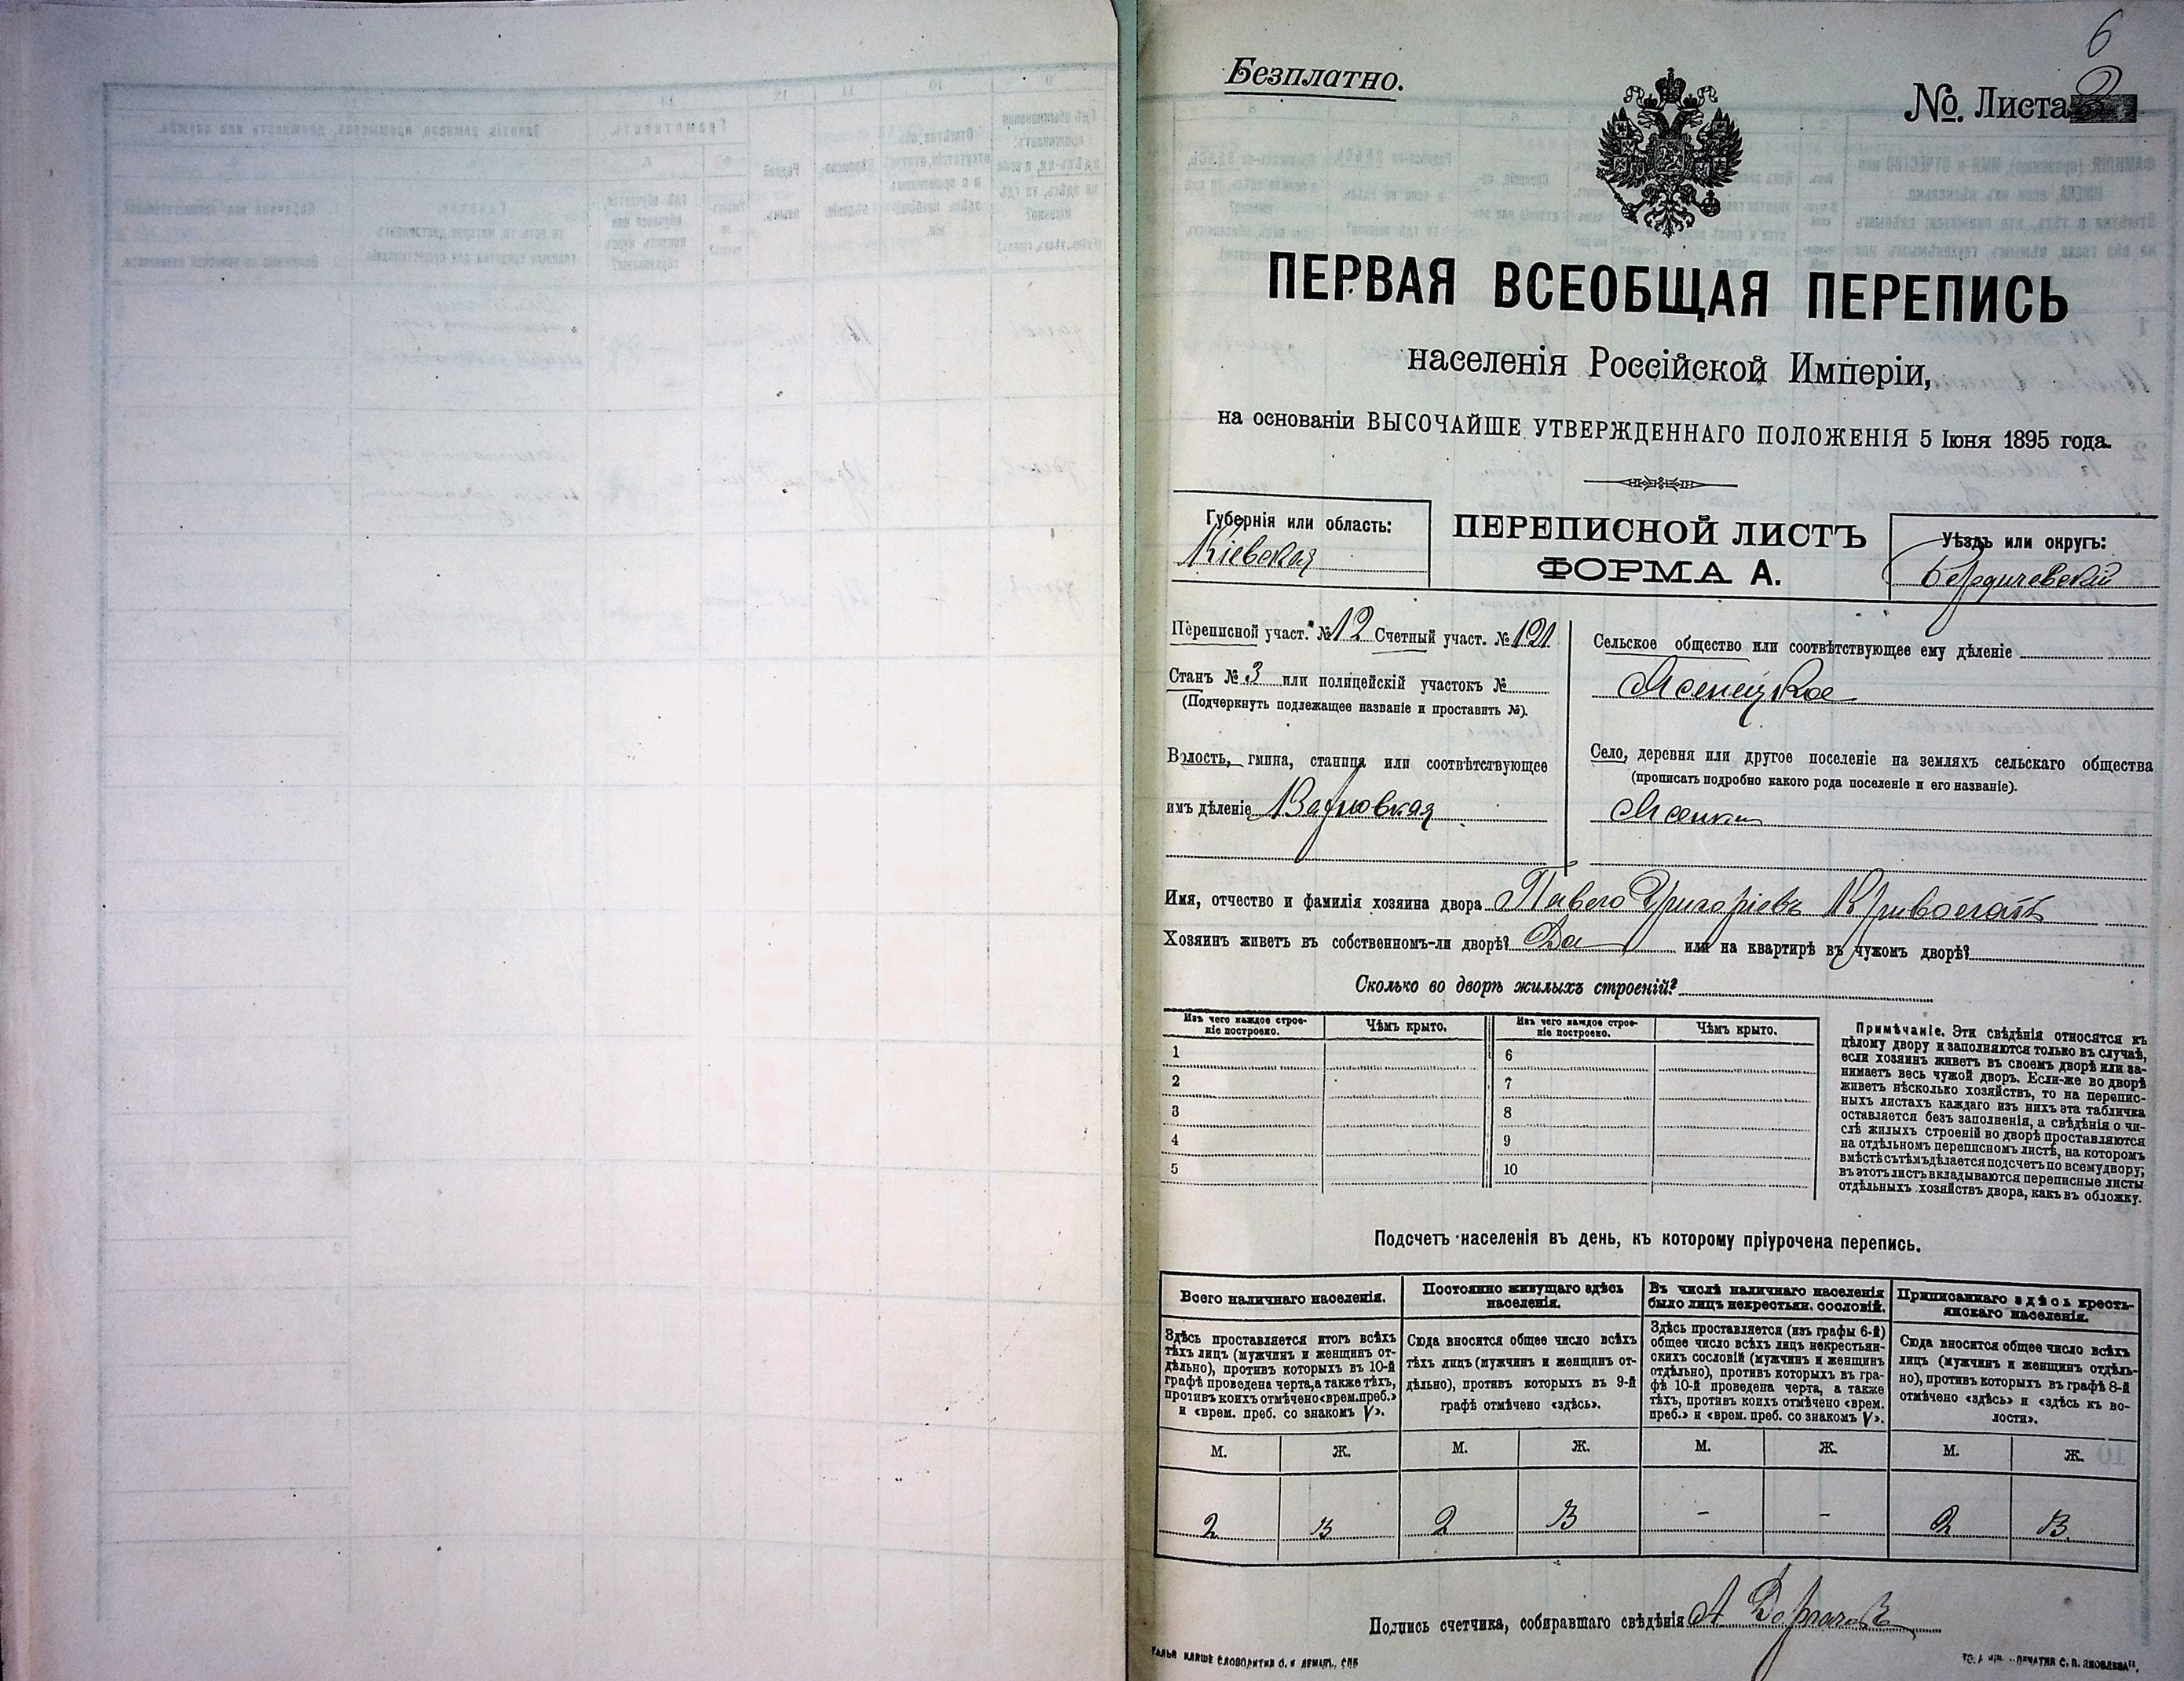 6
Безплатно.
№. Листа 2
ПЕРВАЯ ВСЕОБЩАЯ ПЕРЕПИСЬ
населенія Россійской Имперіи,
на основаніи ВЫСОЧАЙШЕ УТВЕРЖДЕННАГО ПОЛОЖЕНІЯ 5 Іюня 1895 года.
Губернія или область:
Кіевская
ПЕРЕПИСНОЙ ЛИСТЪ
ФОРМА А.
Уѣздъ или округъ:
Бердичевскій
Переписной участ. № 12 Счетный участ. № 121
Станъ № 3 или полицейскій участокъ №
(Подчеркнуть подлежащее названіе и проставить №).
Волость, гмина, станица или соотвѣтствующее
имъ дѣленіе
Сельское общество или соотвѣтствующее ему дѣленіе
Село, деревня или другое поселеніе на земляхъ сельскаго общества
(прописать подробно какого рода поселеніе и его названіе).
Имя, отчество и фамилія хозяина двора Григоріевъ
Хозяинъ живетъ въ собственномъ-ли дворѣ? Да или на квартирѣ въ чужомъ дворѣ?
Сколько во дворѣ жилыхъ строеній?
Изъ чего каждое строе-
ніе построено.
Чѣмъ крыто.
Изъ чего каждое строе-
ніе построено.
Чѣмъ крыто.
1 6
2 7
3 8
4 9
5 10
Примѣчаніе. Эти свѣдѣнія относятся къ
цѣлому двору и заполняются только въ случаѣ,
если хозяинъ живетъ въ своемъ дворѣ или за-
нимаетъ весь чужой дворъ. Если-же во дворѣ
живетъ нѣсколько хозяйствъ, то на перепис-
ныхъ листахъ каждаго изъ нихъ эта табличка
оставляется безъ заполненія, а свѣдѣнія о чи-
слѣ жилыхъ строеній во дворѣ проставляются
на отдѣльномъ переписномъ листѣ, на которомъ
вмѣстѣ съ тѣмъ дѣлается подсчетъ по всему двору;
въ этотъ листъ вкладываются переписные листы
отдѣльныхъ хозяйствъ двора, какъ въ обложку.
Подсчетъ населенія въ день, къ которому пріурочена перепись.
Всего наличнаго населенія.
Здѣсь проставляется итогъ всѣхъ
тѣхъ лицъ (мужчинъ и женщинъ от-
дѣльно), противъ которыхъ въ 10-й
графѣ проведена черта, а также тѣхъ,
противъ коихъ отмѣчено «врем. преб.»
и «врем. преб. со знакомъ V».
Постоянно живущаго здѣсь
населенія.
Сюда вносится общее число всѣхъ
тѣхъ лицъ (мужчинъ и женщинъ от-
дѣльно), противъ которыхъ въ 9-й
графѣ отмѣчено «здѣсь».
Въ числѣ наличнаго населенія
было лицъ некрестьян. сословій.
Здѣсь проставляется (изъ графы 6-й)
общее число всѣхъ лицъ некрестьян-
скихъ сословій (мужчинъ и женщинъ
отдѣльно), противъ которыхъ въ гра-
фѣ 10-й проведена черта, а также
тѣхъ, противъ коихъ отмѣчено «врем.
преб.» и «врем. преб. со знакомъ V».
Приписаннаго здѣсь кресть-
янскаго населенія.
Сюда вносится общее число всѣхъ
лицъ (мужчинъ и женщинъ отдѣль-
но), противъ которыхъ въ графѣ 8-й
отмѣчено «здѣсь» и «здѣсь къ во-
лости».
М. Ж. М. Ж. М. Ж. М. Ж.
2 3 2 3 - - 2 3
Подпись счетчика, собиравшаго свѣдѣнія